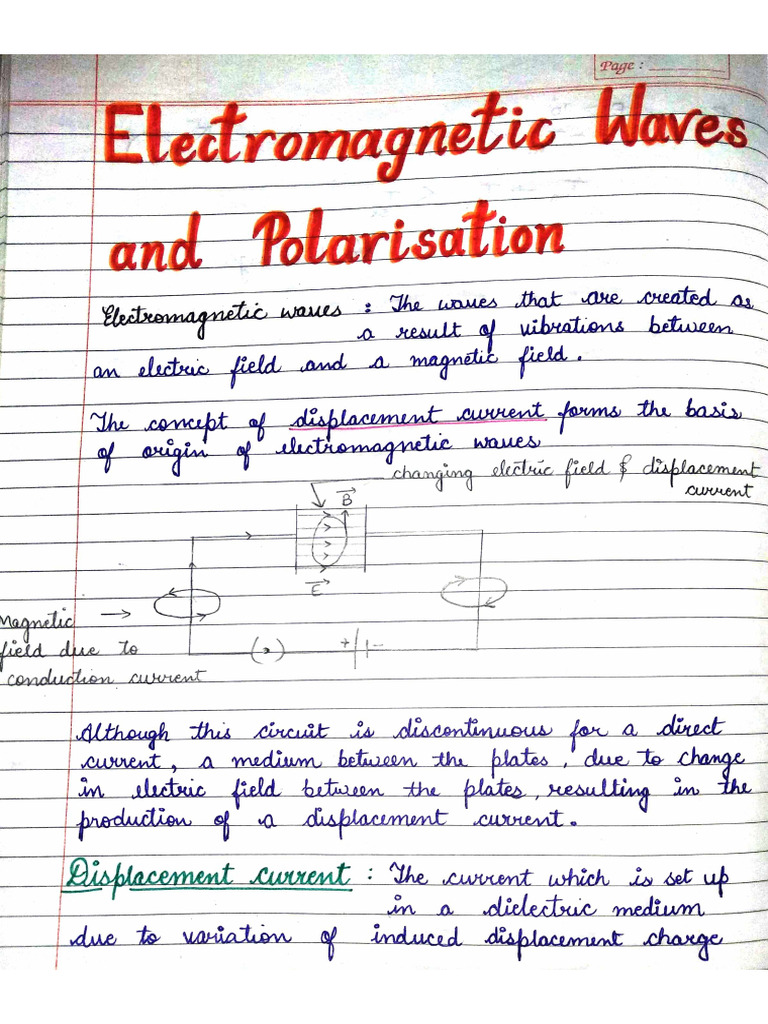 Page :
Electromagnetic Waves
and Polarisation
Electromagnetic waves : The waves that are created as
a result of vibrations between
an electric field and a magnetic field.
The concept of displacement current forms the basis
of origin of electromagnetic waves
changing electric field & displacement
current
B
E
Magnetic
field due to
conduction current
+ -
Although this circuit is discontinuous for a direct
current, a medium between the plates, due to change
in electric field between the plates, resulting in the
production of a displacement current.
Displacement current : The current which is set up
in a dielectric medium
due to variation of induced displacement charge